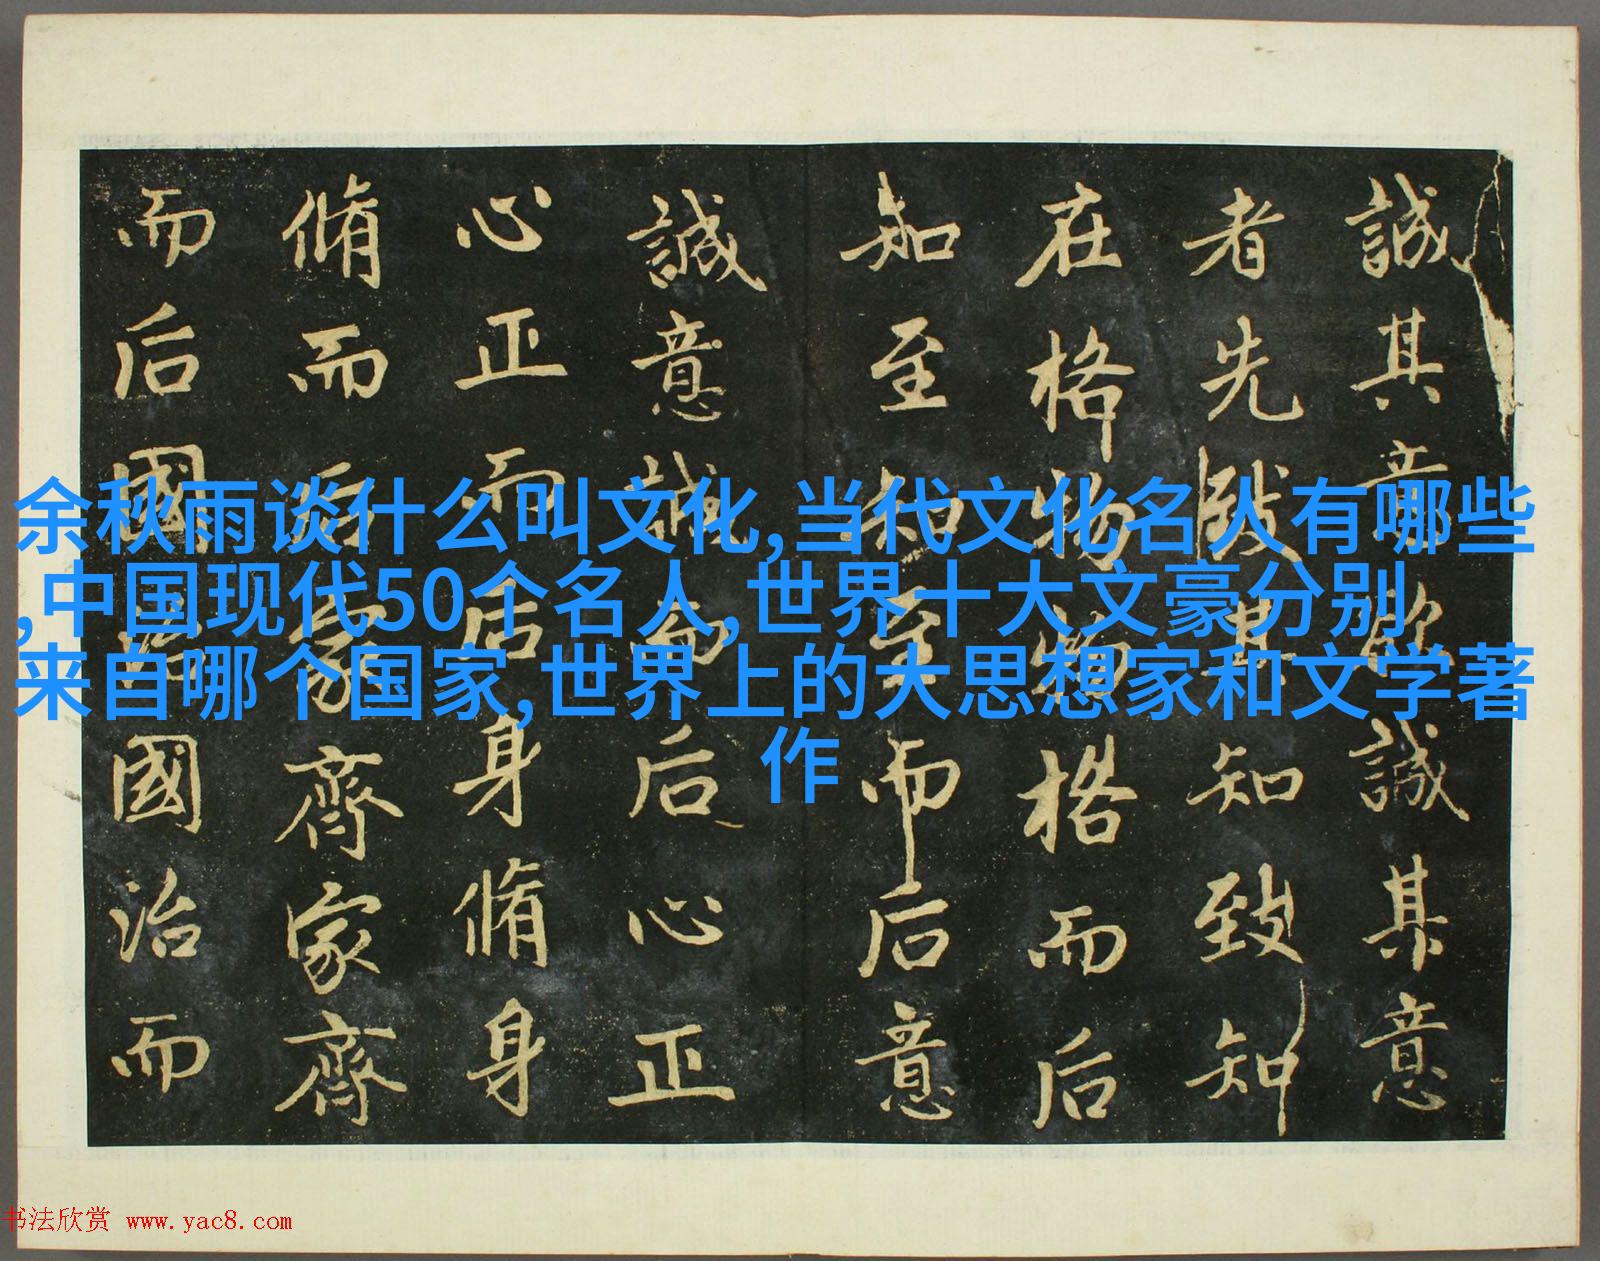 誠其意欲誠其意
者先致其知致知
在格物物格而后
知至知至而后意
誠意誠而后心正
心正而后身脩身
脩而后家齊家齊
而后國治國治而
余秋雨谈什么叫文化,当代文化名人有哪些
,中国现代50个名人,世界十大文豪分别
来自哪个国家,世界上的大思想家和文学著
作
书法欣赏 www.yac8.com